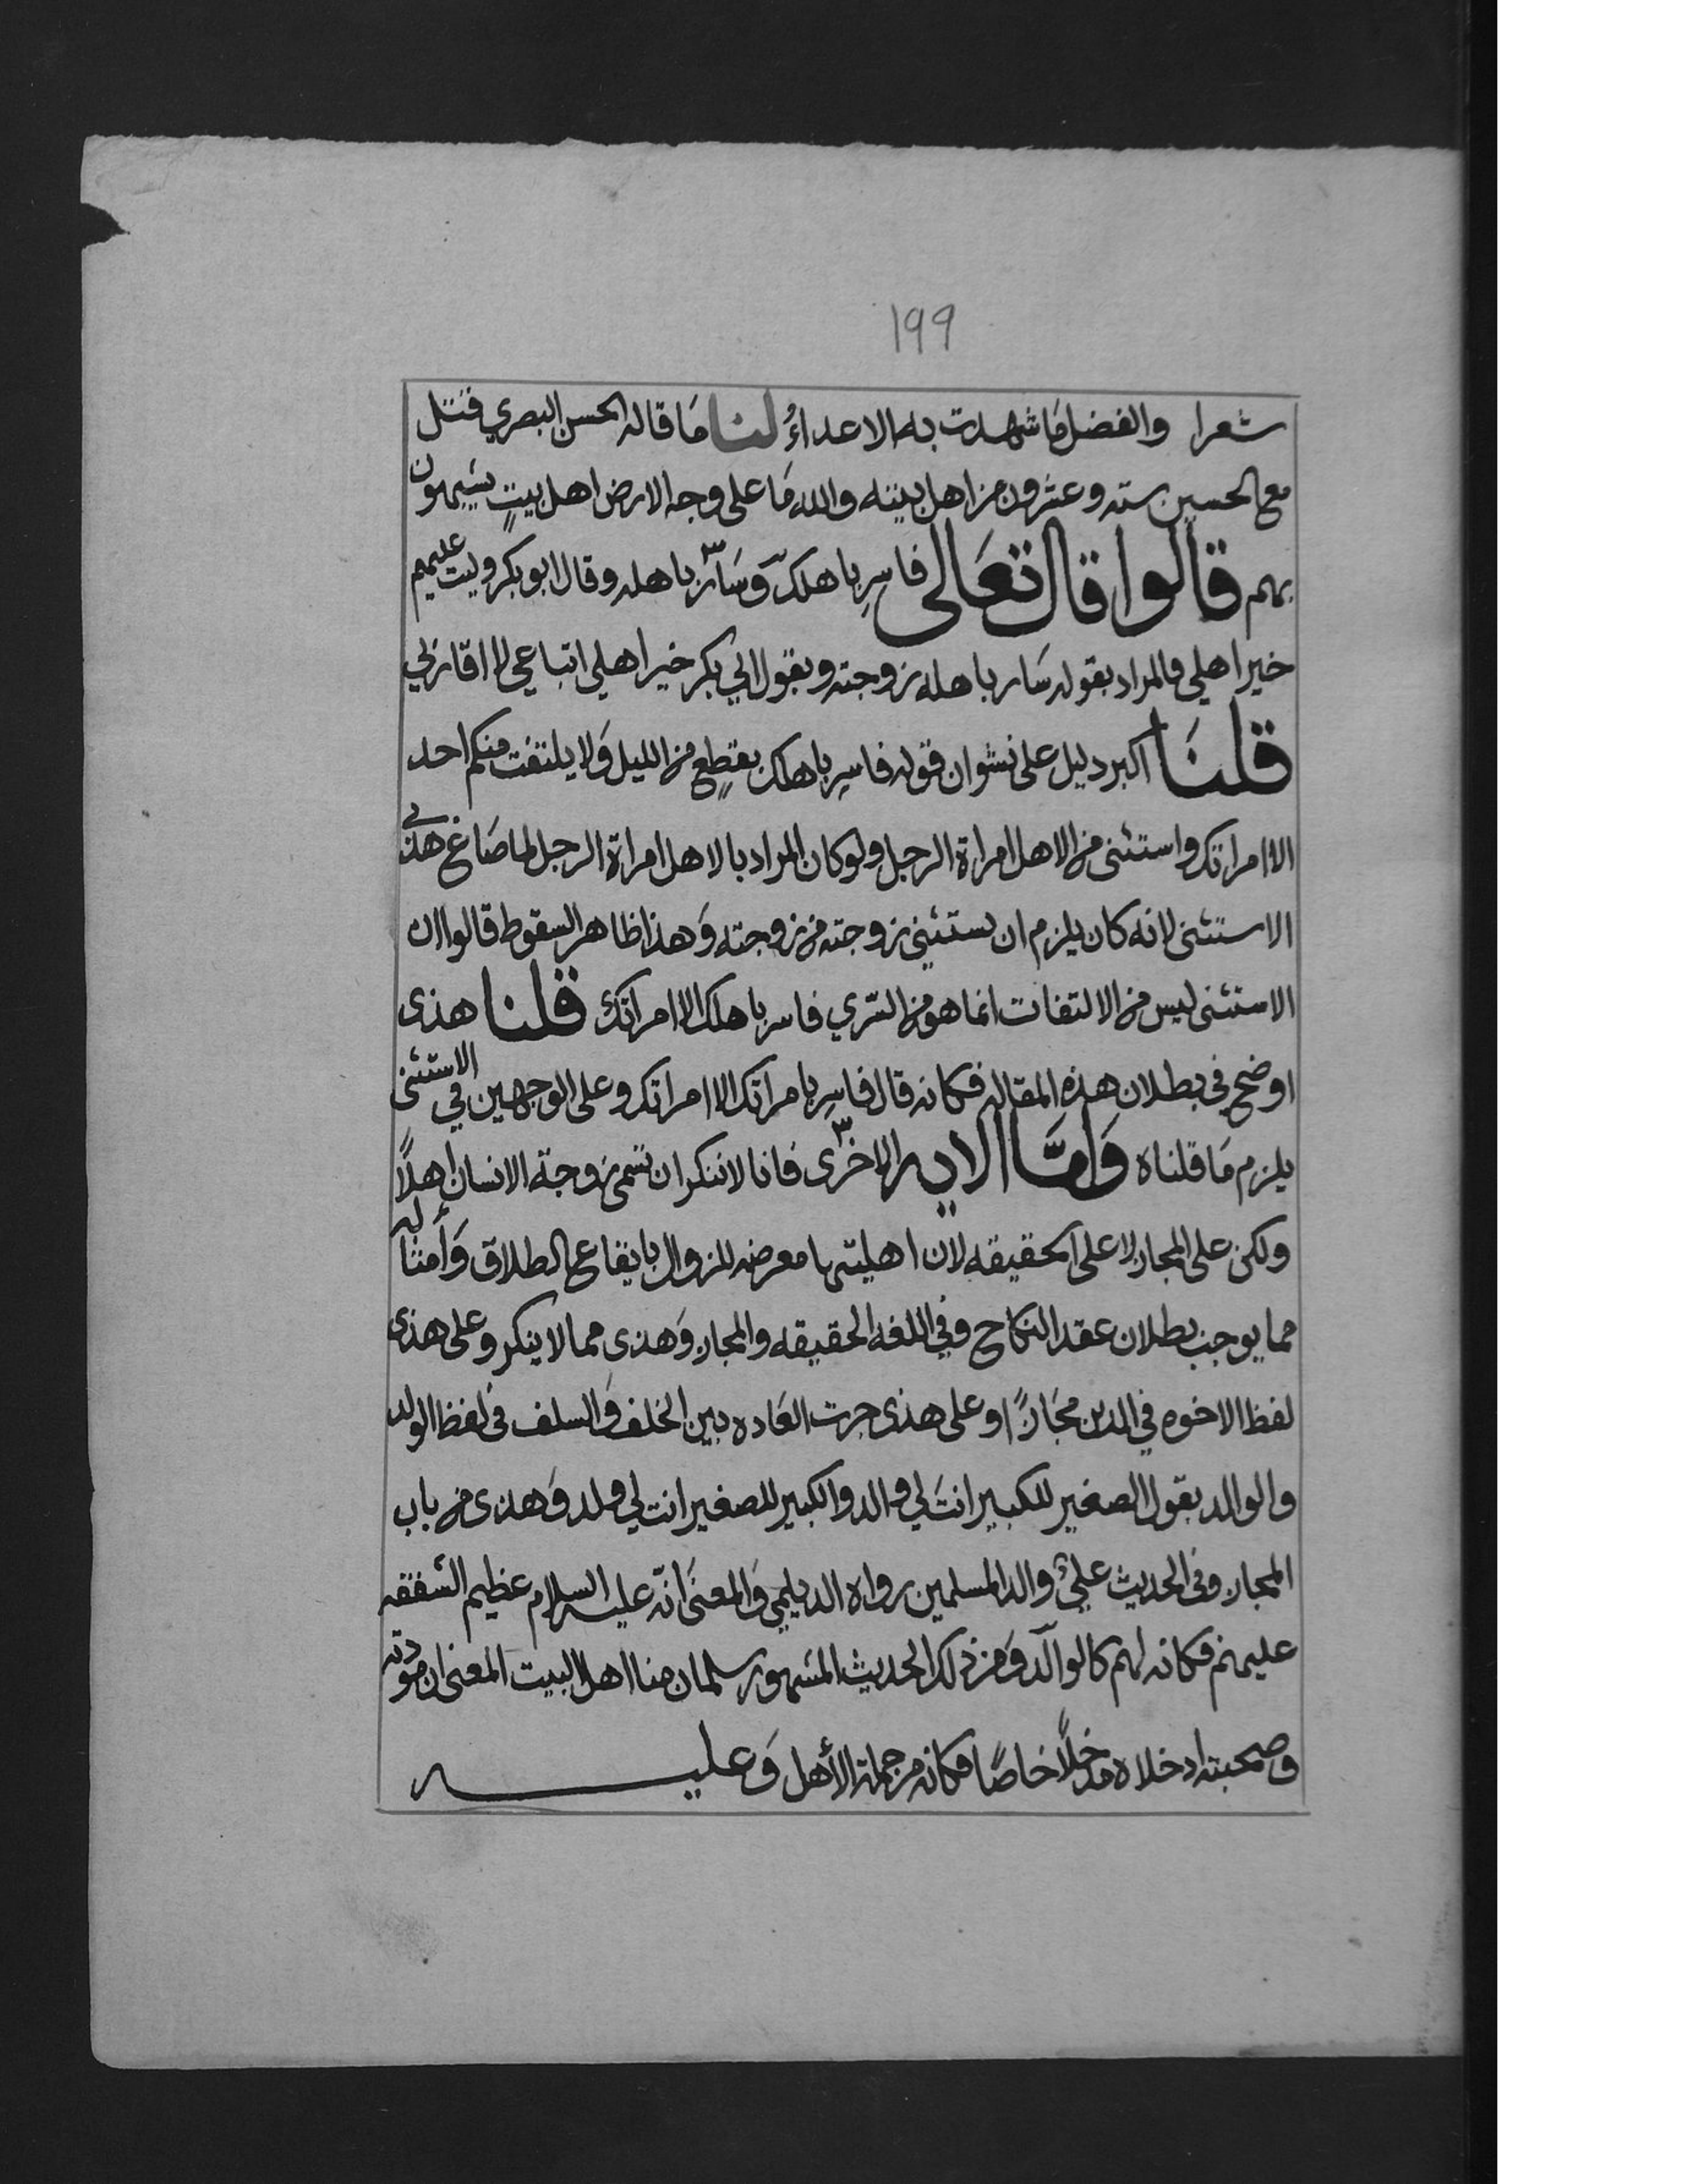 ١٩٩
شعرا والفضل مَا شهدت به الاعداءُ لنا مَا قاله الحسن البصري قتل
مع الحسين سته وعشرون من اهل بيته والله مَا على وجه الارض اهل بيتٍ يشبهون
بهم قالوا قال تعَالى فاسرِ باهلك وَسَارَ باهله وقال ابو بكر وليت عليهم
خير اهلي فالمراد بقوله سَار باهله زوجته وبقول ابي بكر خير اهلي اتباعي لا اقاربي
قلنَا اكبر دليل على نشوان قوله فاسرِ باهلك بقطعٍ من الليل وَلا يلتفت منكم احد
الا امراتك واستثنى من الاهل امراة الرجل ولو كان المراد بالاهل امراة الرجل لما صَاغ هذى
الاستثنى لانه كان يلزم ان يستثني زوجته من زوجته وَهذا ظاهر السقوط قالوا ان
الاستثنى ليس من الالتفات انما هو من السّري فاسر باهلك الا امراتك قلنا هذى
اوضح في بطلان هذه المقاله فكانه قال فاسرِ بامراتك الا امراتك وعلى الوجهين في الاستثنى
يلزم مَا قلناه وَامَّا الايه الاخرى فانا لاننكر ان تسمى زوجة الانسان اهلاً
ولكن على المجاز لا على الحقيقه لان اهليتها معرضه للزوال بايقاع الطلاق وَأمثاله
مما يوجب بطلان عقد النكاح وفي اللغه الحقيقه والمجاز وَهذى مما لا ينكر وعلى هذى
لفظ الاخوه في الدين مجَازًا وعلى هذى جرت العَاده بين الخلف وَالسلف في لفظ الولد
والوالد يقول الصغير للكبير انتَ لي والد والكبير للصغير انت لي ولد وَهذى من باب
المجاز وفي الحديث عليٌ والد المسلمين رواه الديلمي وَالمعنَى انّه عليه السلام عظيم الشفقه
عليهم فكانه لهم كالوالد وَمن ذلك الحديث المشهور سلمان منا اهل البيت المعنى ان مودته
وصحبته ادخلاه مدخلًا خاصًا فكانه من جملة الأهل وَعليه